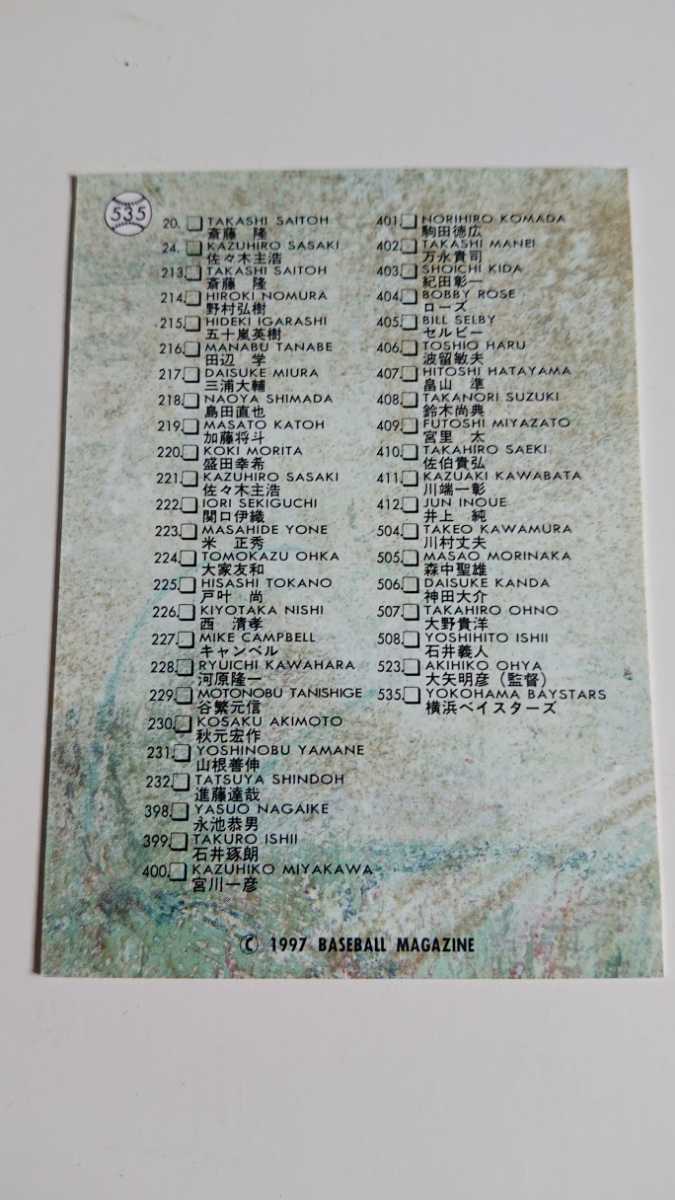 535
20. TAKASHI SAITOH
斎藤 隆
24. KAZUHIRO SASAKI
佐々木主浩
213. TAKASHI SAITOH
斎藤 隆
214. HIROKI NOMURA
野村弘樹
215. HIDEKI IGARASHI
五十嵐英樹
216. MANABU TANABE
田辺 学
217. DAISUKE MIURA
三浦大輔
218. NAOYA SHIMADA
島田直也
219. MASATO KATOH
加藤将斗
220. KOKI MORITA
盛田幸希
221. KAZUHIRO SASAKI
佐々木主浩
222. IORI SEKIGUCHI
関口伊織
223. MASAHIDE YONE
米 正秀
224. TOMOKAZU OHKA
大家友和
225. HISASHI TOKANO
戸叶 尚
226. KIYOTAKA NISHI
西 清孝
227. MIKE CAMPBELL
キャンベル
228. RYUICHI KAWAHARA
河原隆一
229. MOTONOBU TANISHIGE
谷繁元信
230. KOSAKU AKIMOTO
秋元宏作
231. YOSHINOBU YAMANE
山根善伸
232. TATSUYA SHINDOH
進藤達哉
398. YASUO NAGAIKE
永池恭男
399. TAKURO ISHII
石井琢朗
400. KAZUHIKO MIYAKAWA
宮川一彦
401. NORIHIRO KOMADA
駒田徳広
402. TAKASHI MANEI
万永貴司
403. SHOICHI KIDA
紀田彰一
404. BOBBY ROSE
ローズ
405. BILL SELBY
セルビー
406. TOSHIO HARU
波留敏夫
407. HITOSHI HATAYAMA
畠山 準
408. TAKANORI SUZUKI
鈴木尚典
409. FUTOSHI MIYAZATO
宮里 太
410. TAKAHIRO SAEKI
佐伯貴弘
411. KAZUAKI KAWABATA
川端一彰
412. JUN INOUE
井上 純
504. TAKEO KAWAMURA
川村丈夫
505. MASAO MORINAKA
森中聖雄
506. DAISUKE KANDA
神田大介
507. TAKAHIRO OHNO
大野貴洋
508. YOSHIHITO ISHII
石井義人
523. AKIHIKO OHYA
大矢明彦（監督）
535. YOKOHAMA BAYSTARS
横浜ベイスターズ
© 1997 BASEBALL MAGAZINE